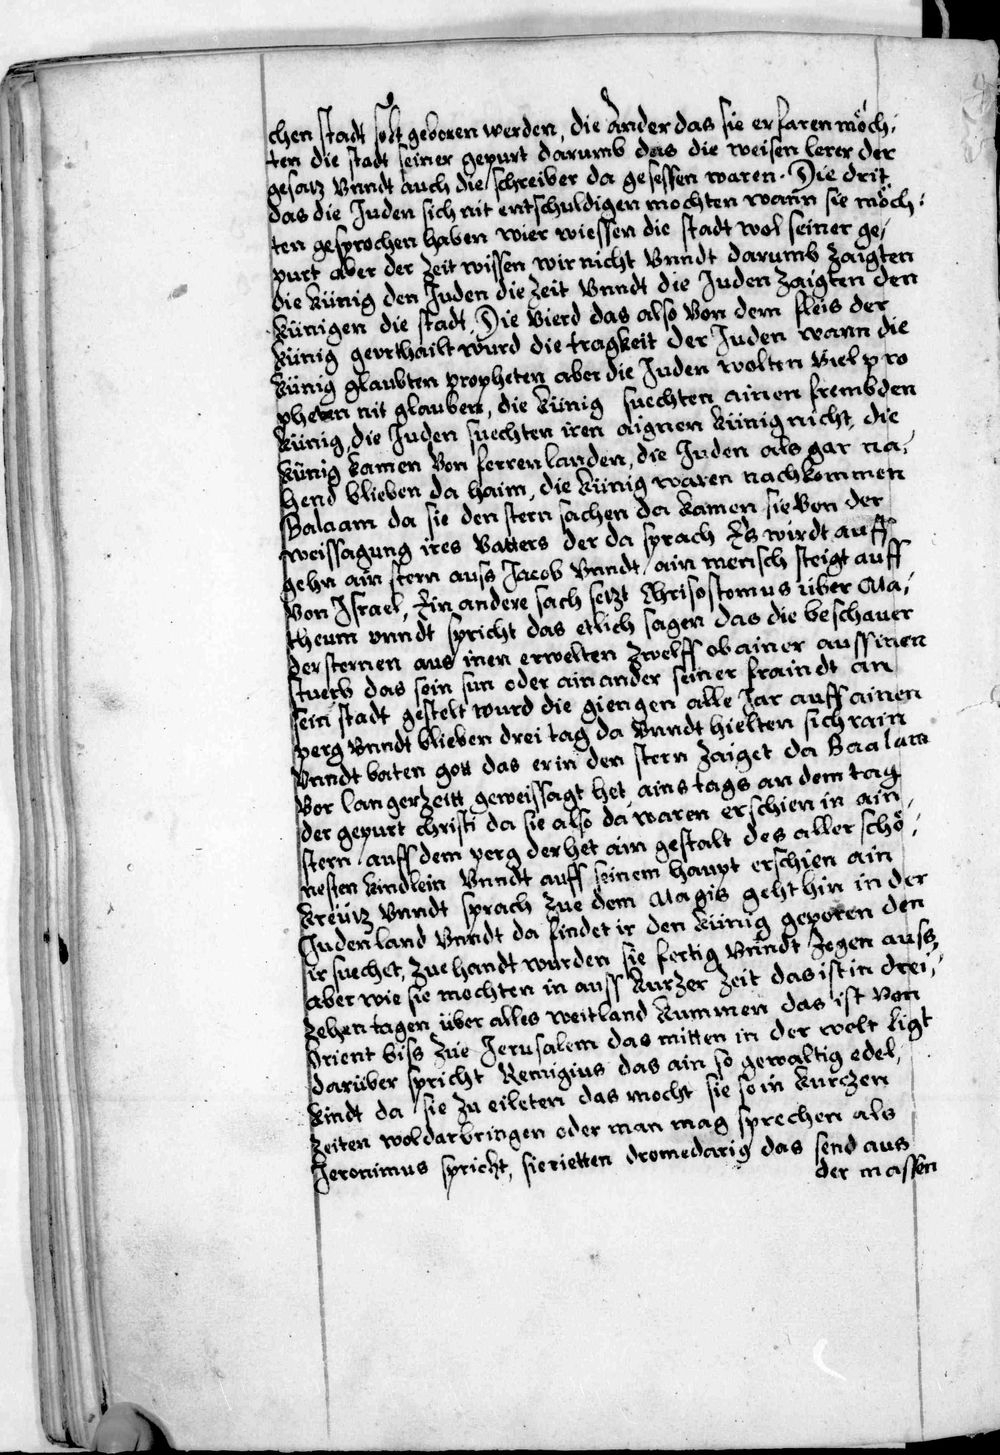 chen stadt solt geboren werden, die ander das sie erfaren möch,
ten die stadt seiner gepurt darumb das die weisen lerer der
gesatz Vnndt auch die schreiber da gesessen waren. Die drit
das die Juden sich nit entschuldigen mochten wann sie möch,
ten gesprochen haben wier wiessen die stadt wol seiner ge,
purt aber der zeit wissen wir nicht Vnndt darumb zaigten
die künig den Juden die zeit Vnndt die Juden zaigten den
künigen die stadt. Die vierd das also Von dem fleis der
künig geurthailt wurd die tragkeit der Juden wann die
künig glaubten propheten aber die Juden wolten Viel pro
pheten nit glauben, die künig suechten ainen frembden
künig, die Juden suechten iren aignen künig nicht, die
künig kamen Von ferren landen, die Juden als gar na,
hend blieben da haim, die künig waren nachkommen
Balaam da sie den stern sachen da kamen sie Von der
weissagung ires Vatters der da sprach Es wirdt auff
gehn ain stern auss Jacob Vnndt ain mensch steigt auff
Von Israel, Ein andere sach setzt Chrisostomus über Ma,
theum vnndt spricht das etlich sagen das die beschauer
der sternen aus inen erwelten zwelff ob ainer auss inen
stuerb das sein sun oder ain ander seiner fraindt an
sein stadt gestelt wurd die giengen alle Jar auff ainen
perg Vnndt blieben drei tag da Vnndt hielten sich rain
Vnndt baten gott das er in den stern zaiget da Baalam
Vor langer zeitt geweissagt het, ains tags an dem tag
der gepurt christi da sie also da waren erschien in ain
stern auff dem perg der het ain gestalt des aller schö,
nesten kindlein Vnndt auff seinem haupt erschien ain
kreütz Vnndt sprach zue dem Magis geht hin in der
Juden land Vnndt da findet ir den künig geporen den
ir suechet, zuehandt wurden sie fertig Vnndt zogen auss,
aber wie sie mochten in auss kurzer zeit das ist in drei,
zehen tagen über alles weit land kummen das ist von
Orient biss zue Jerusalem das mitten in der welt ligt
darüber spricht Remigius das ain so gewaltig edel,
kindt da sie zu eileten das mocht sie so in kurczen
zeiten wol darbringen oder man mag sprechen als
Jeronimus spricht, sie rietten dromedarig das send aus
der massen